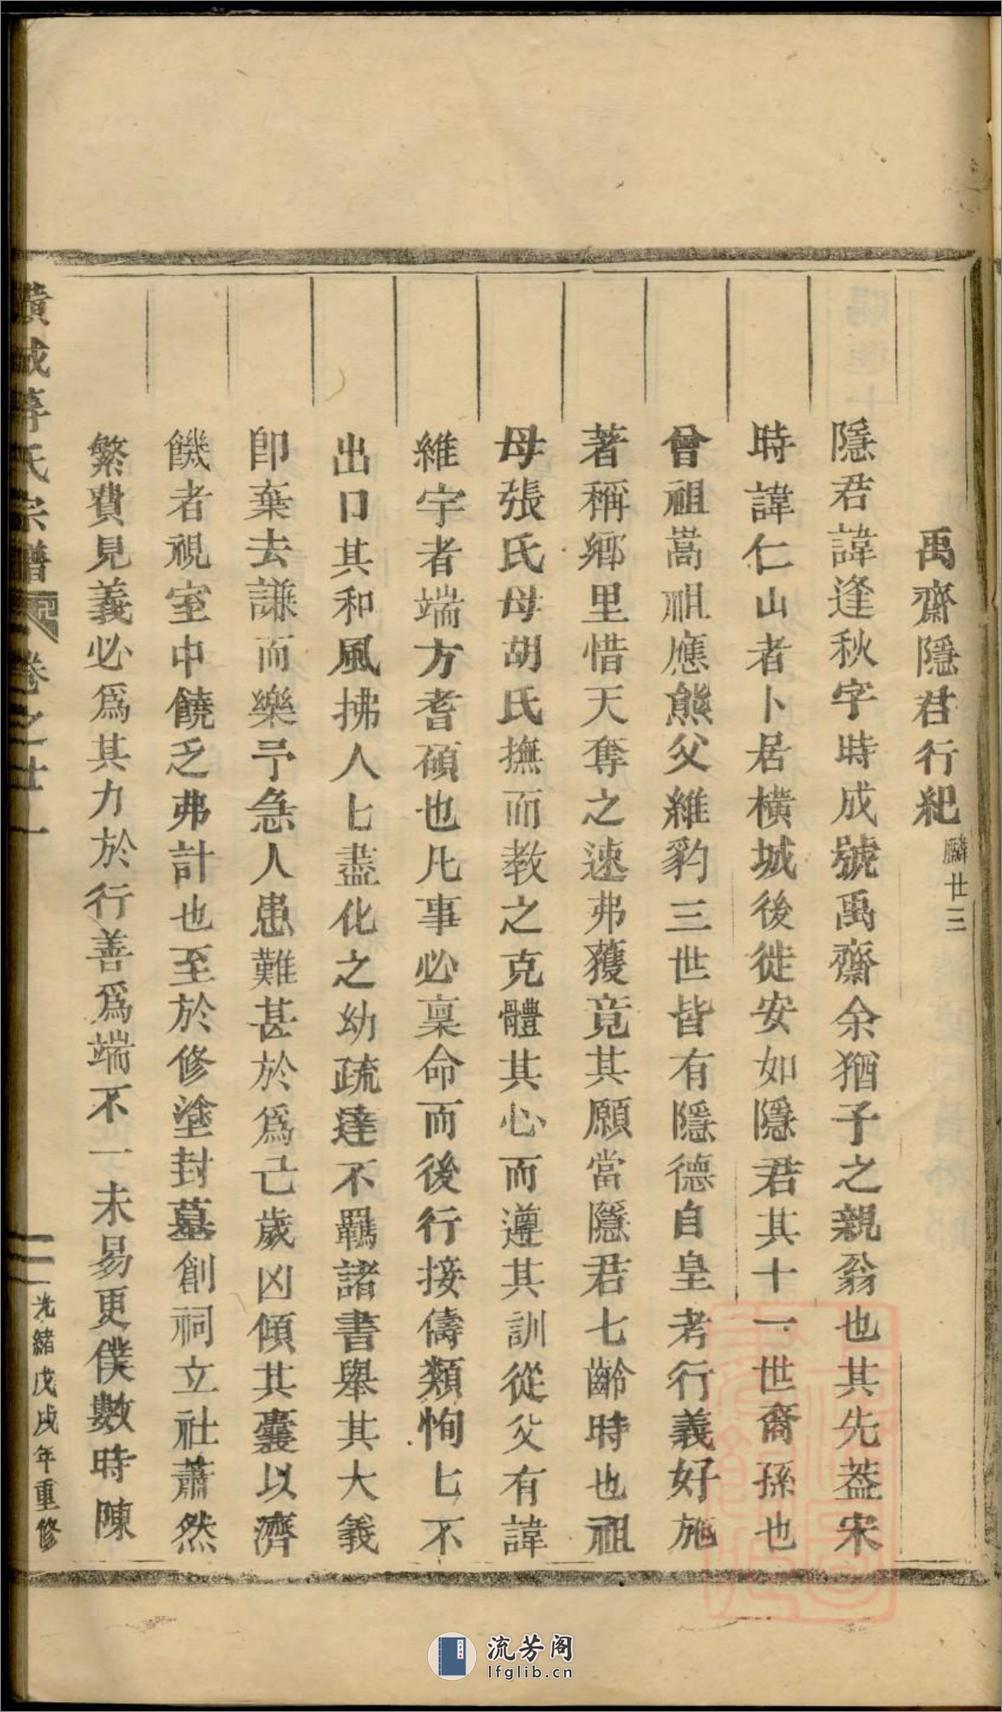 禹齋隱君行紀麟廿三
隱君諱逢秋字時成號禹齋余猶子之親翁也其先葢宋
時諱仁山者卜居橫城後徙安如隱君其十一世裔孫也
曾祖嵩祖應熊父維豹三世皆有隱德自皇考行義好施
著稱鄉里惜天奪之速弗獲竟其願當隱君七齡時也祖
母張氏母胡氏撫而教之克體其心而遵其訓從父有諱
維宇者端方耆碩也凡事必稟命而後行接儔類恂匕不
出口其和風拂人匕盡化之幼疏達不羈諸書舉其大義
卽棄去謙而樂予急人患難甚於爲己歲凶傾其囊以濟
饑者視室中饒乏弗計也至於修塗封墓創祠立社蕭然
繁費見義必爲其力於行善爲端不一未易更僕數時陳
橫城李氏宗譜 卷之廿一 光緒戊戌年重修
流芳阁
lfglib.cn